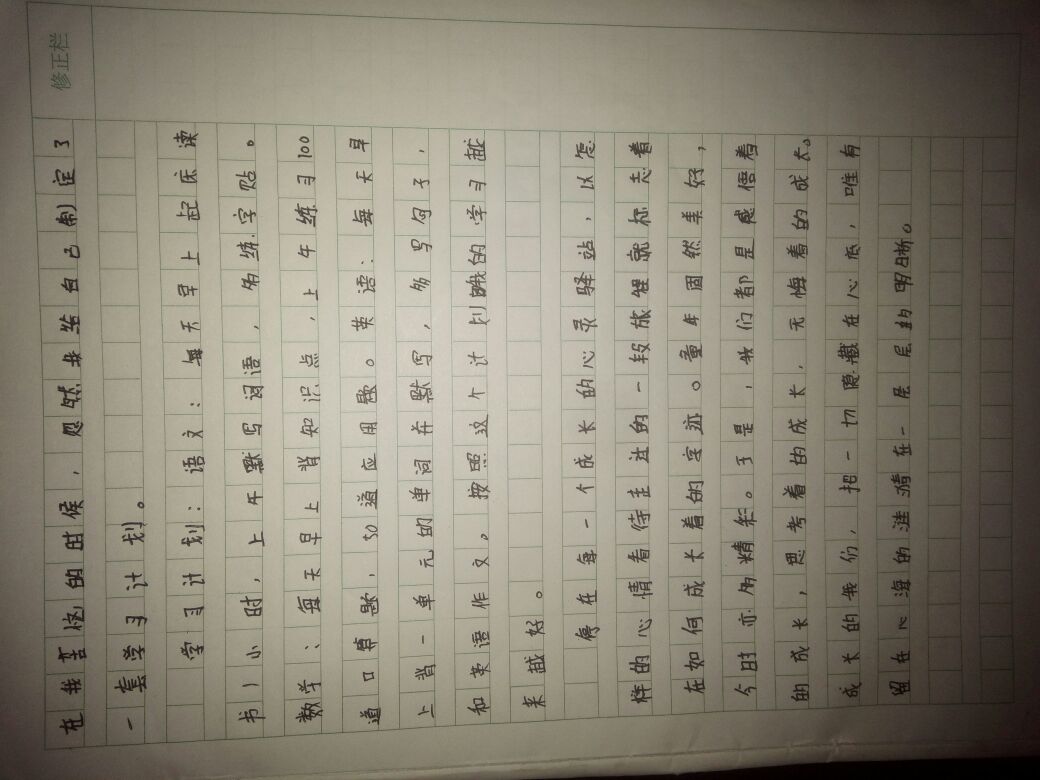 修正栏
在我苦恼的时候，忽然我给自己制定了
一套学习计划。
学习计划：语文：每天早上起床读
书1小时，上午默写词语，多练字贴。
数学、每天早上背知识点，上午练习100
道口算题，50道应用题。英语：每天早
上背一单元的单词并默写，多写句子，
和英语作文。按照这个计划我的学习越
来越好。
停在每一个成长的心灵驿站，以怎
样的心情看待走过的一段旅程就标志着
在如何成长着的字迹。童年固然美好，
今时亦为精彩。于是，我们都是感悟着
的成长，思考着的成长，无悔着的成长。
成长的我们，把一切隐藏在心底，唯有
留在心海的涟漪在一层层的明晰。